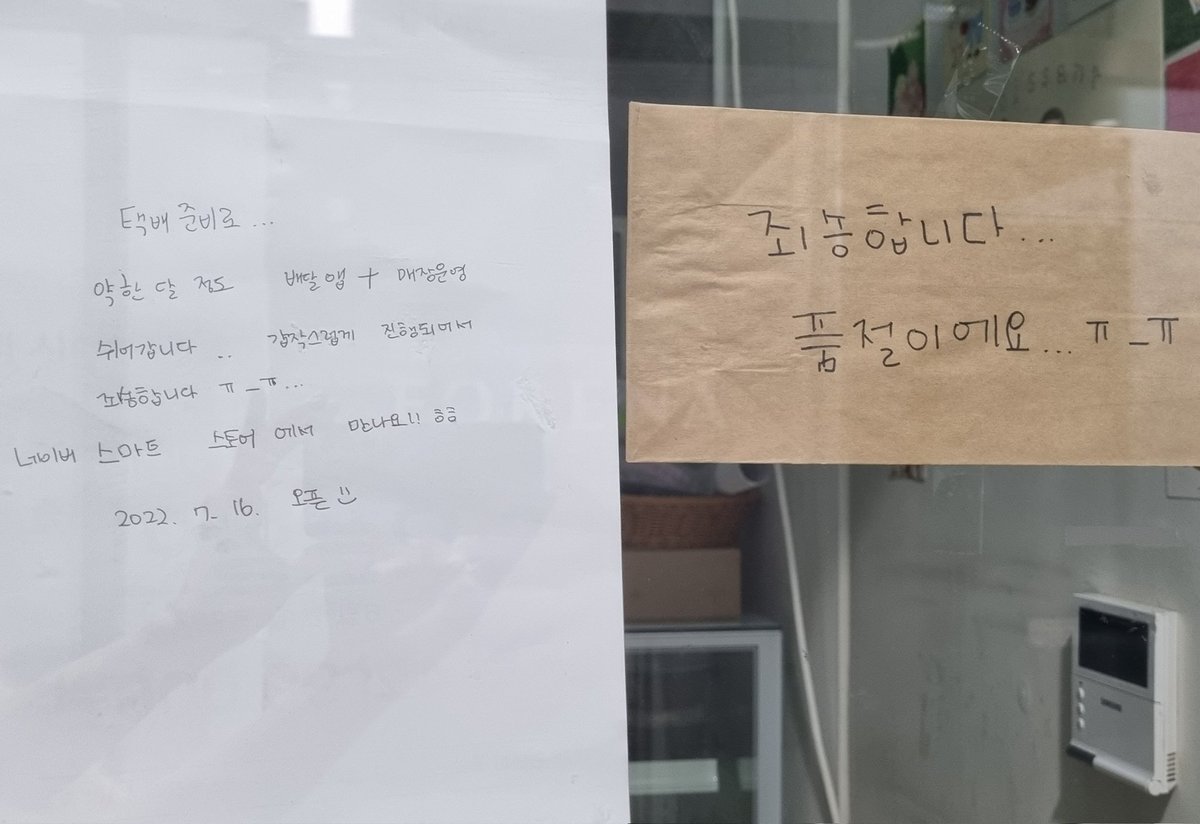 택배 준비로...
약 한 달 정도 배달앱 + 매장운영
쉬어갑니다.. 갑작스럽게 진행되어서
죄송합니다 ㅠ_ㅠ...
네이버 스마트 스토어 에서 만나요!! ㅎㅎ
2022. 7. 16. 오픈 :)
죄송합니다...
품절이에요... ㅠ_ㅠ